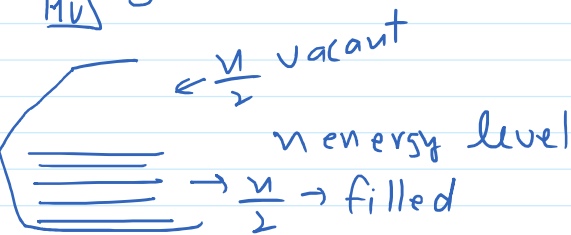 n/2 vacant
n energy level
→ n/2 → filled